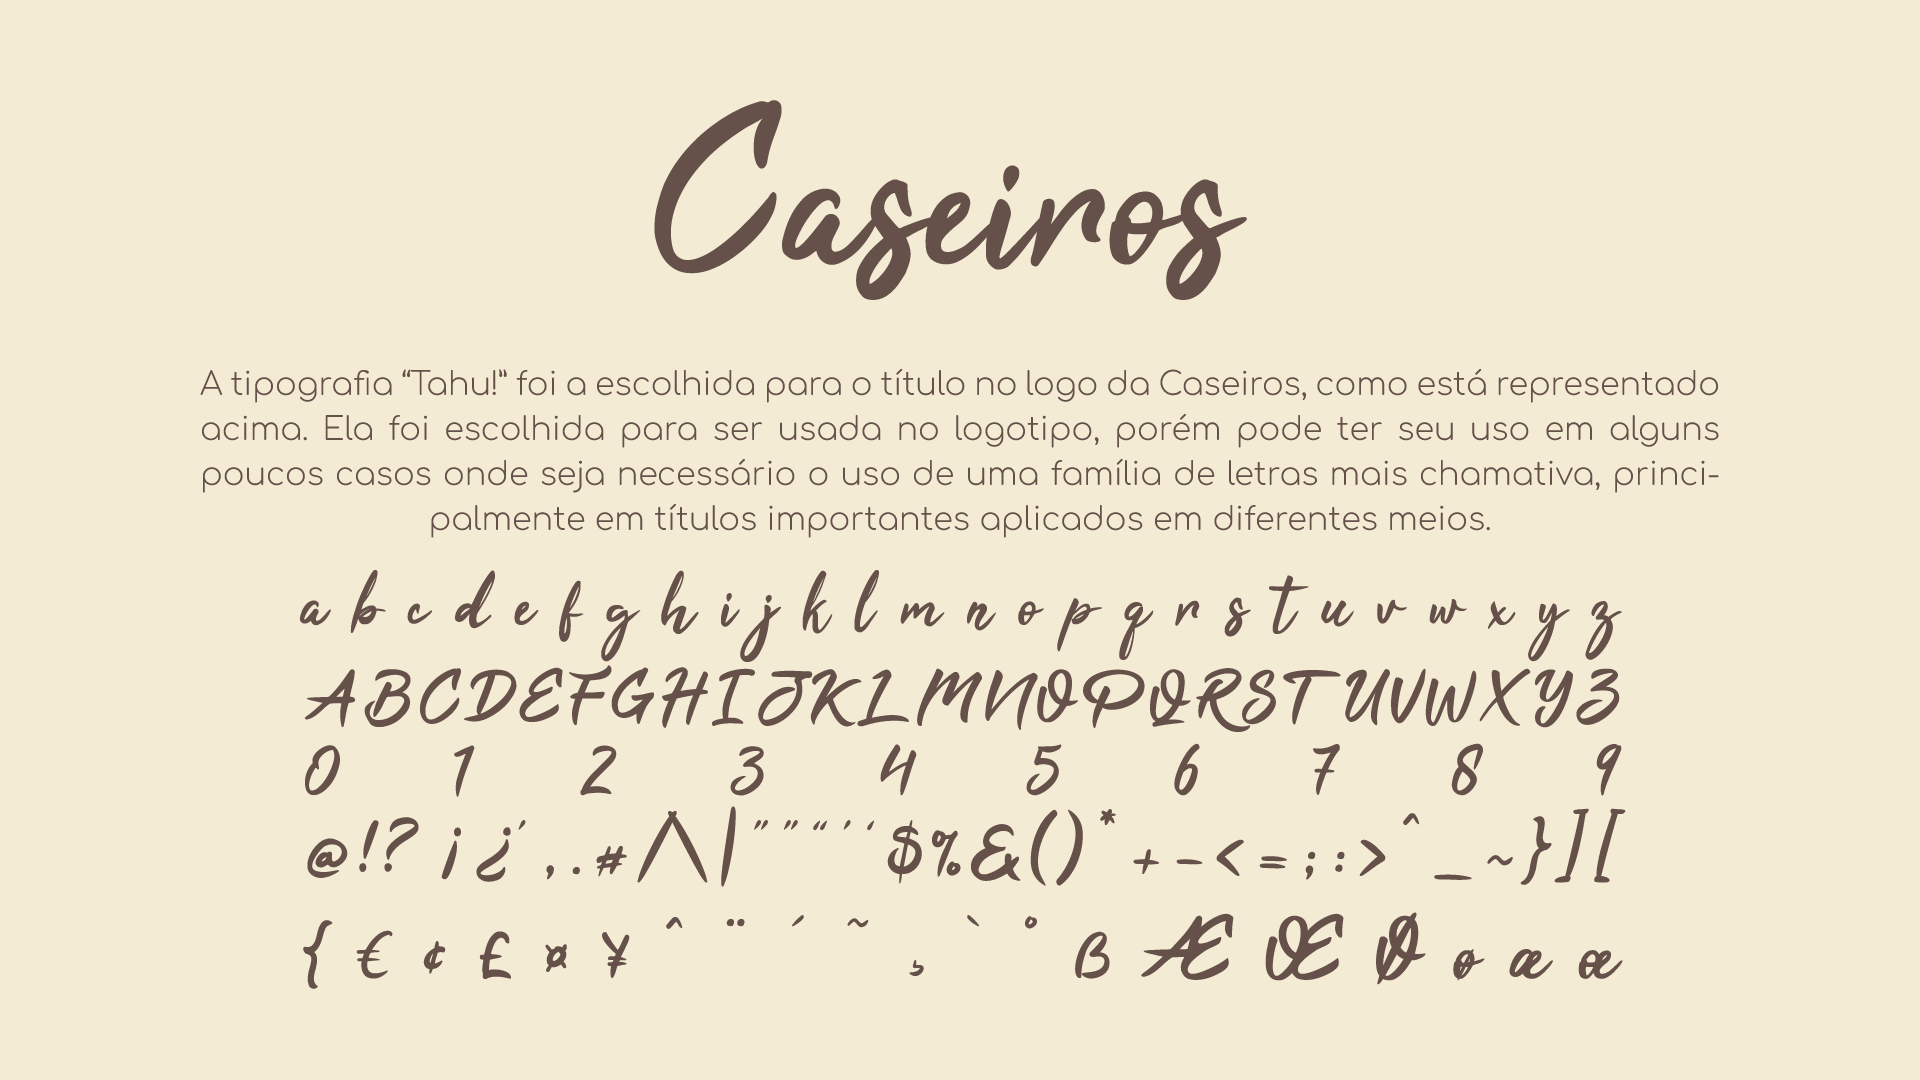 Caseiros
A tipografia “Tahu!” foi a escolhida para o título no logo da Caseiros, como está representado
acima. Ela foi escolhida para ser usada no logotipo, porém pode ter seu uso em alguns
poucos casos onde seja necessário o uso de uma família de letras mais chamativa, princi-
palmente em títulos importantes aplicados em diferentes meios.
a b c d e f g h i j k l m n o p q r s t u v w x y z
A B C D E F G H I J K L M N O P Q R S T U V W X Y Z
0 1 2 3 4 5 6 7 8 9
@ ! ? ¡ ¿ ' , . # / \ | " ” “ ’ ‘ $ % & ( ) * + - < = ; : > ^ _ ~ } ] [
{ € ¢ £ ¤ ¥ ˆ ¨ ´ ˜ ¸ ` ° ß Æ Œ Ø ø æ œ